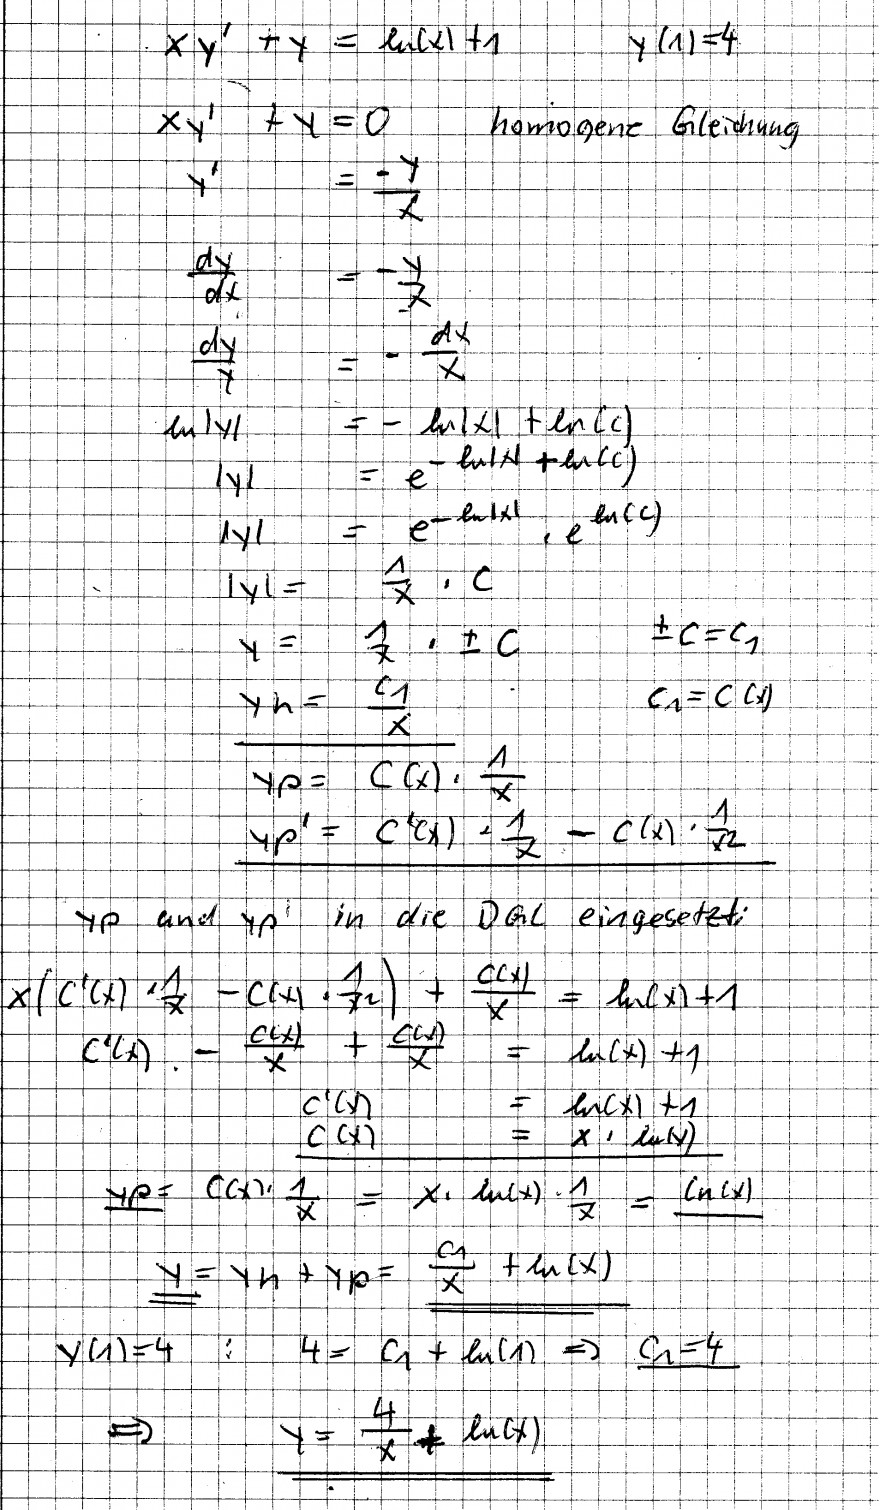 xy' + y = ln(x)+1 y(1)=4
xy' + y = 0 homogene Gleichung
y' = -y/x
dy/dx = -y/x
dy/y = - dx/x
ln|y| = - ln|x| + ln(c)
|y| = e^(-ln|x| + ln(c))
|y| = e^(-ln|x|) · e^(ln(c))
|y| = 1/x · C
y = 1/x · ± C ± C = C₁
yh = C₁/x C₁ = C(x)
yp = C(x) · 1/x
yp' = C'(x) · 1/x - C(x) · 1/x²
yp und yp' in die DGL eingesetzt:
x(C'(x) · 1/x - C(x) · 1/x²) + C(x)/x = ln(x)+1
C'(x) - C(x)/x + C(x)/x = ln(x)+1
C'(x) = ln(x)+1
C(x) = x · ln(x)
yp = C(x) · 1/x = x · ln(x) · 1/x = ln(x)
y = yh + yp = C₁/x + ln(x)
y(1)=4 : 4 = C₁ + ln(1) ⇒ C₁=4
⇒ y = 4/x + ln(x)